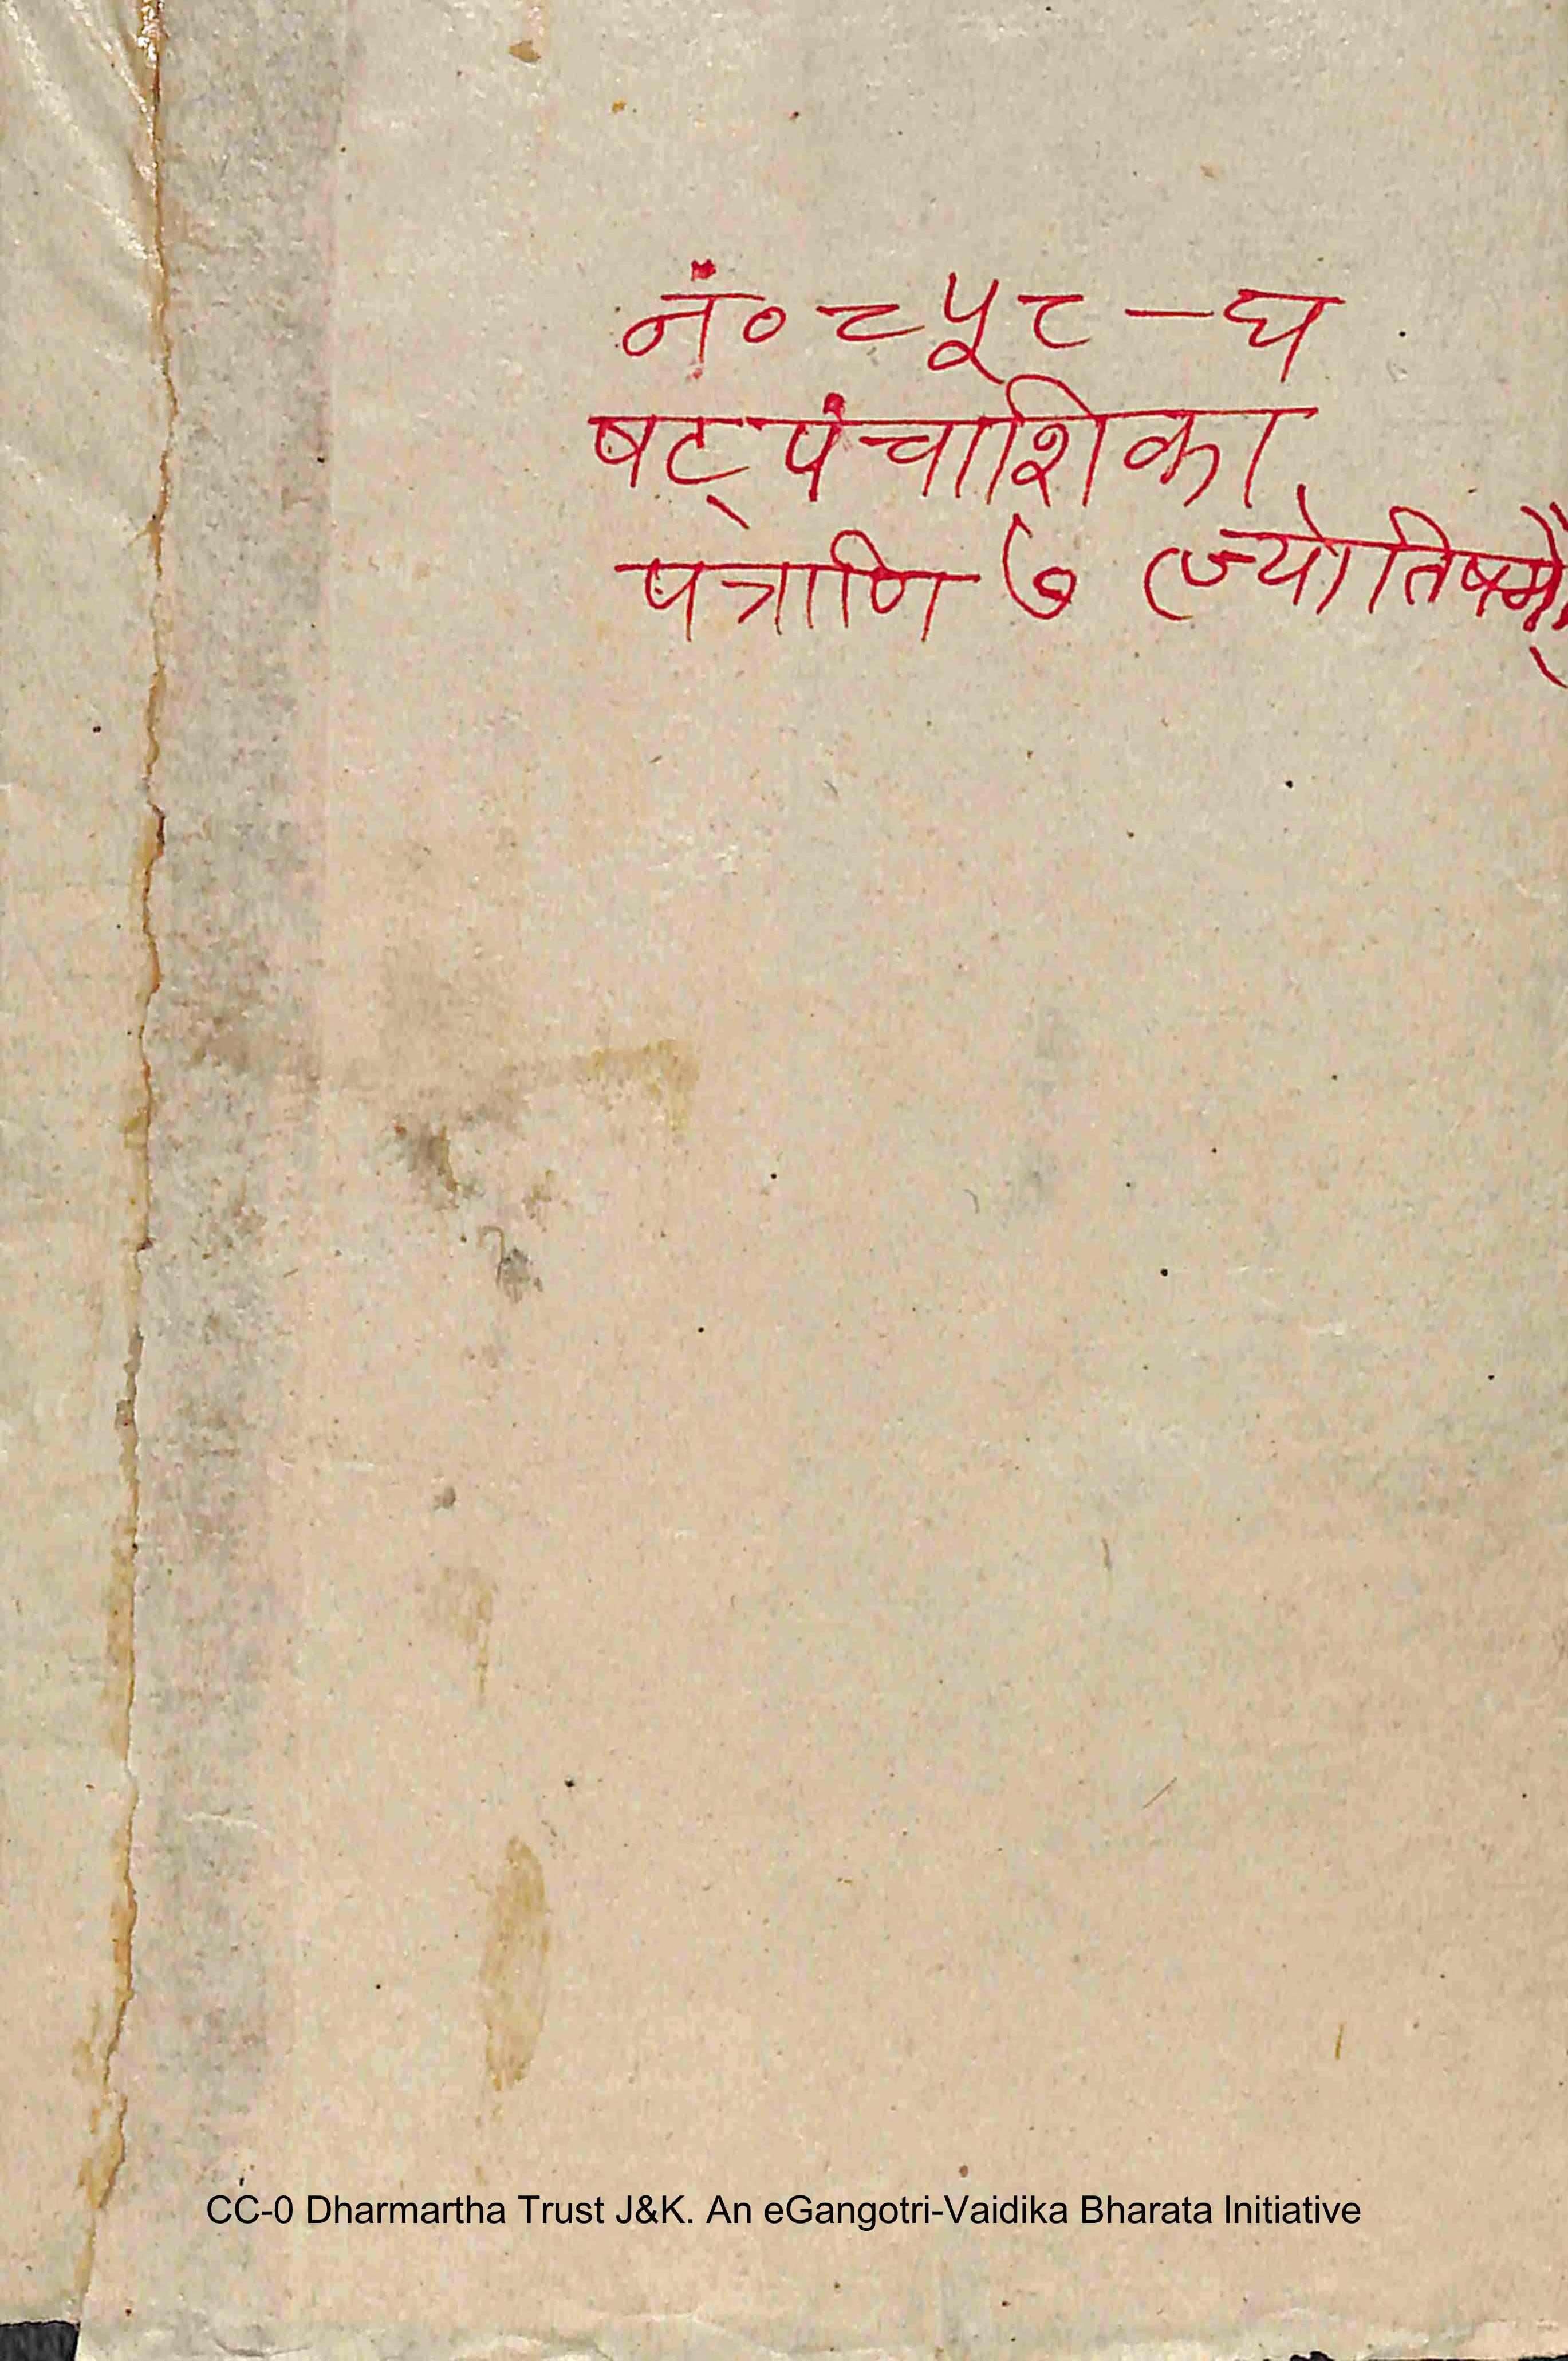 नं० ८५८ - घ
षट्पंचाशिका
पत्राणि ७ (ज्योतिषमें)
CC-0 Dharmartha Trust J&K. An eGangotri-Vaidika Bharata Initiative